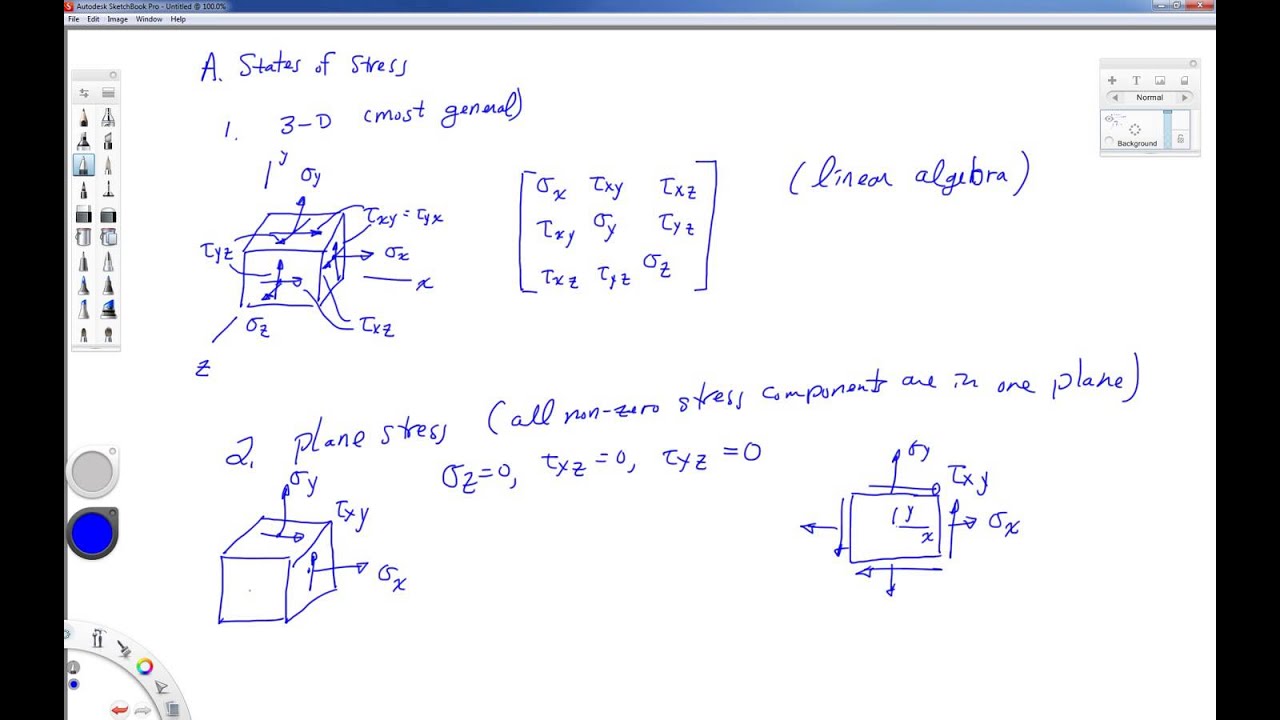 Autodesk SketchBook Pro - Untitled @ 100.0%
File Edit Image Window Help
A. States of stress
1. 3-D (most general)
y
σy
τxy = τyx
τyz
σx
x
σz
τxz
z
σx τxy τxz
τxy σy τyz
τxz τyz σz
(linear algebra)
T
Normal
Background
2. plane stress (all non-zero stress components are in one plane)
σz=0, τxz=0, τyz=0
σy
τxy
σx
σy
τxy
y
x
σx